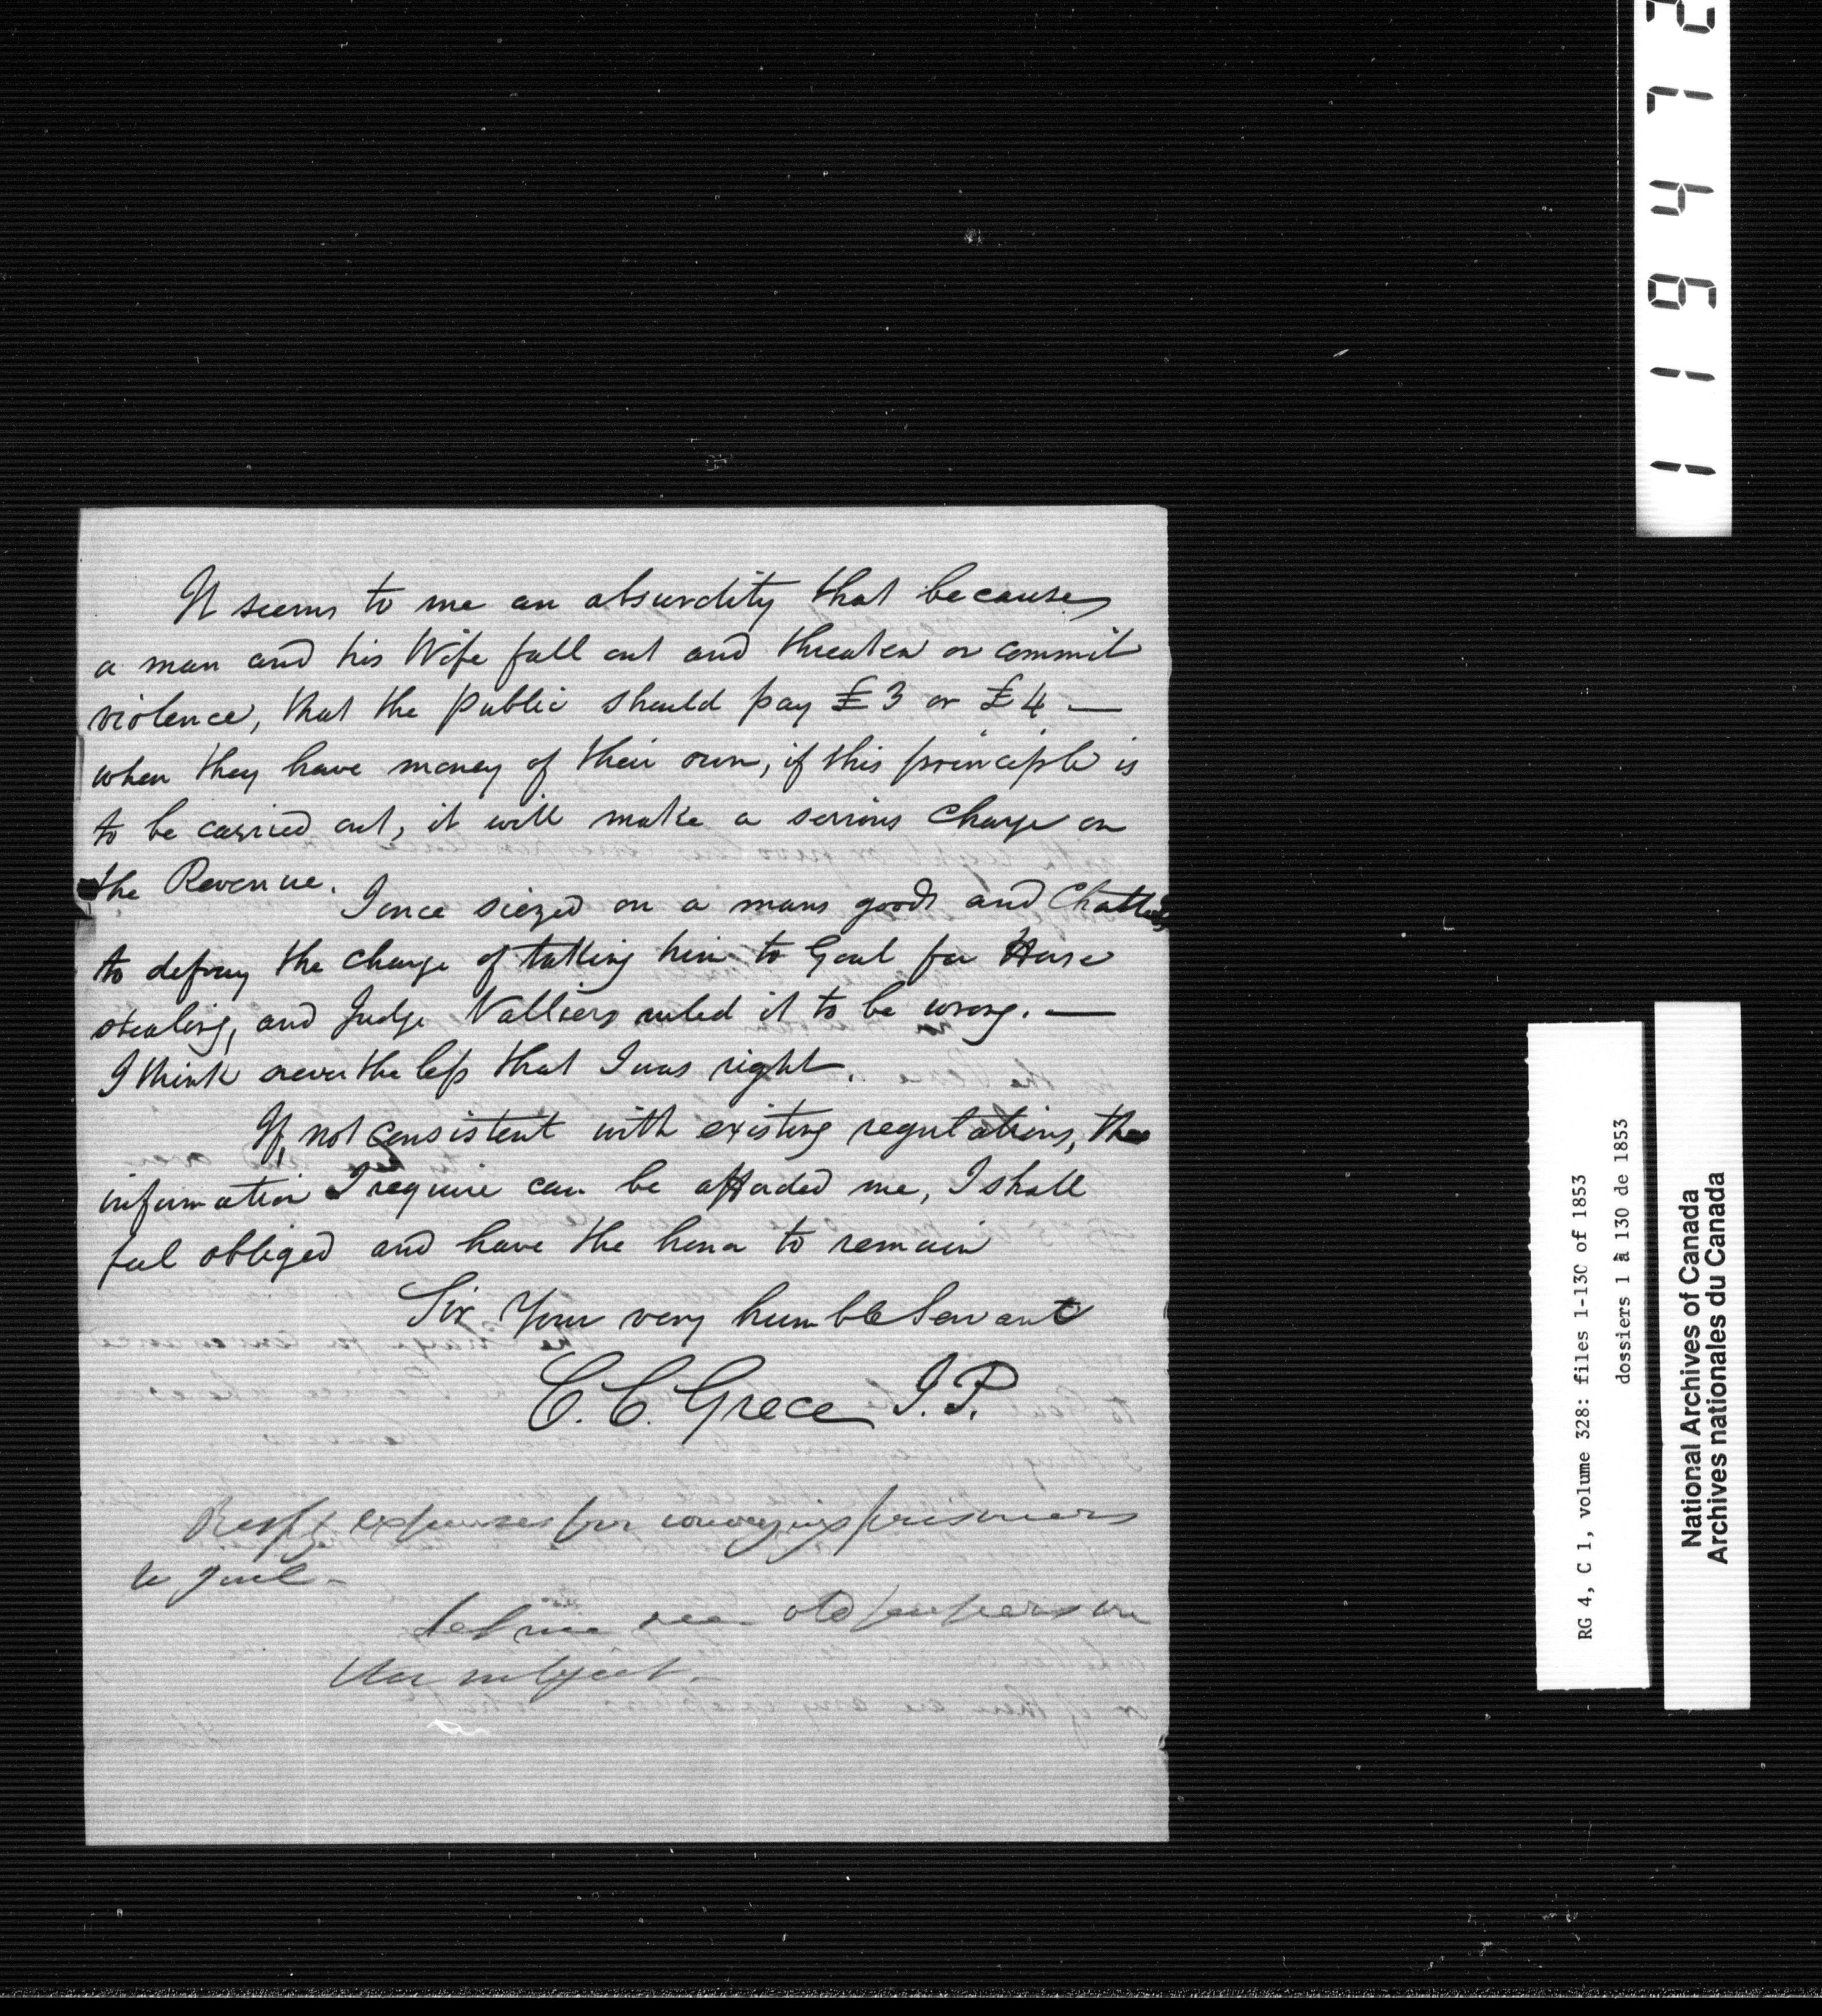 It seems to me an absurdity that because
a man and his Wife fall out and threaten or commit
violence, that the public should pay £3 or £4 —
when they have money of their own, if this principle is
to be carried out, it will make a serious charge on
the Revenue.
I once siezed on a mans goods and Chattels
to defray the charge of taking him to Goal for Horse
stealing, and Judge Valliers ruled it to be wrong. —
I think never the less that I was right.
If, not consistent with existing regulations, the
information I require can be afforded me, I shall
feel obliged and have the honor to remain
Sir Your very humble Servant
C. C. Grece J.P.
Respg expenses for conveying prisoners
to gaol -
Let me see old papers on
this subject -
119472
RG 4, C 1, volume 328: files 1-130 of 1853
dossiers 1 à 130 de 1853
National Archives of Canada
Archives nationales du Canada